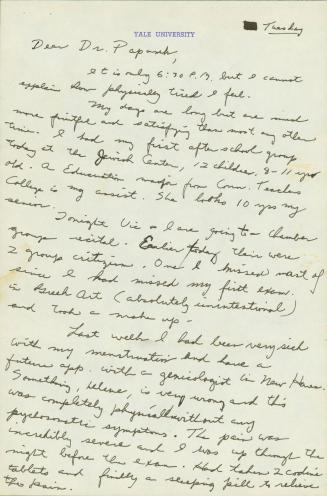 YALE UNIVERSITY
Tuesday
Dear Dr. Papanek,
It is only 6:30 P.M. but I cannot
explain how physically tired I feel.
My days are long but are much
more fruitful and satisfying than most any other
time. I had my first after school group
today at the Jewish Center, 12 children, 8-11 yrs
old. A Education major from Conn. Teachers
College is my assist. She looks 10 yrs my
senior.
Tonight Vic + I are going to a chamber
group recital. Earlier today their were
2 group critizism. One I missed most of
since I had missed my first exam.
in Greek Art (absolutely unintentional)
and took a make up -
Last week I had been very sick
with my menstruation and have a
future app. with a genicologist in New Haven.
Something, believe, is very wrong and this
was completely physical without any
psychosomatic symptoms. The pain was
incredibly severe and I was up through the
night before the exam. Had taken 2 codine
tablets and finally a sleeping pill to relieve
the pain.